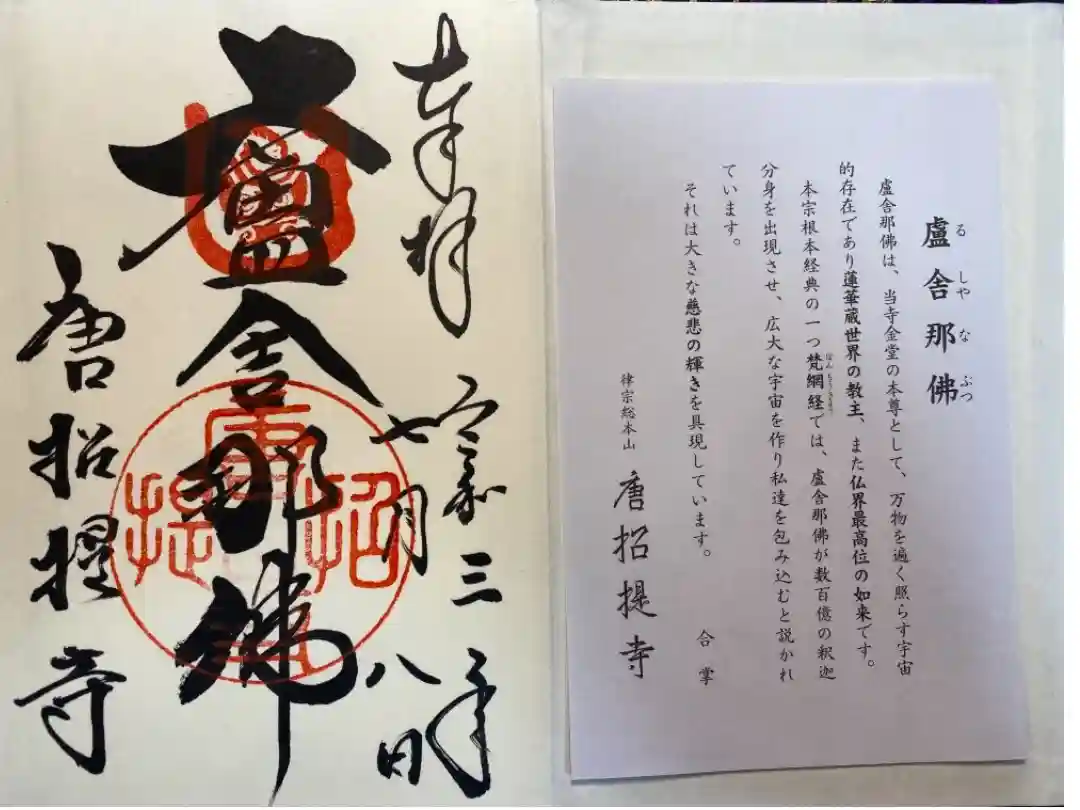 盧舎那佛
る しや な ぶつ
盧舎那佛は、当寺金堂の本尊として、万物を遍く照らす宇宙
的存在であり蓮華蔵世界の教主、また仏界最高位の如来です。
本宗根本経典の一つ梵網経では、盧舎那佛が数百億の釈迦
分身を出現させ、広大な宇宙を作り私達を包み込むと説かれ
ています。
それは大きな慈悲の輝きを具現しています。
合掌
律宗総本山 唐招提寺
奉拝 令和三年
七月八日
盧舎那佛
唐招提寺
唐招提寺